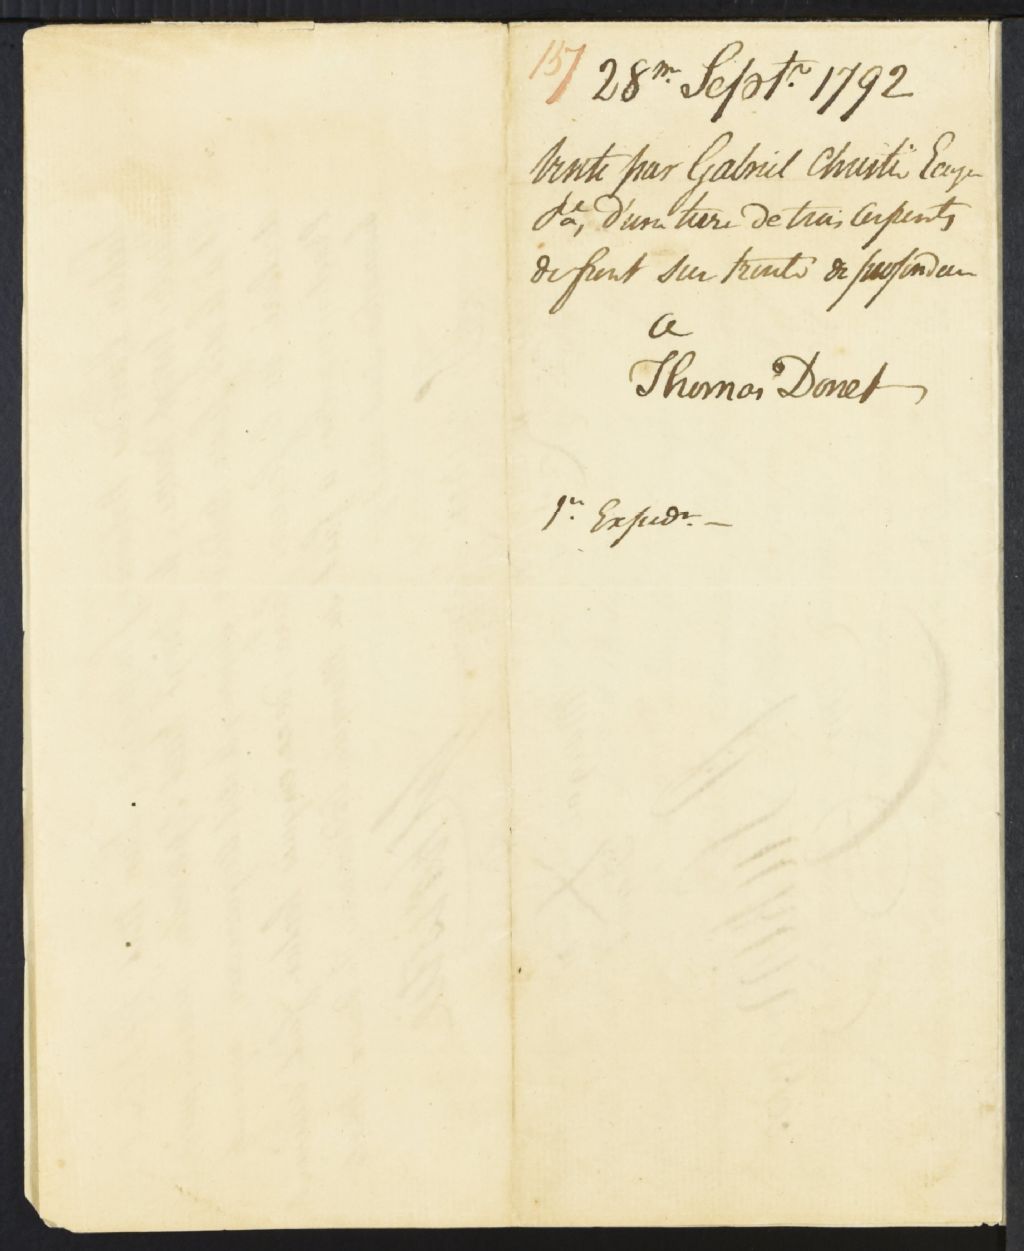 157
28me Septr. 1792
Vente par Gabriel Christie Ecuyer
&a, d'une terre de trois arpents
de front sur trente de profondeur
a
Thomas Donet
1re Expedn. —